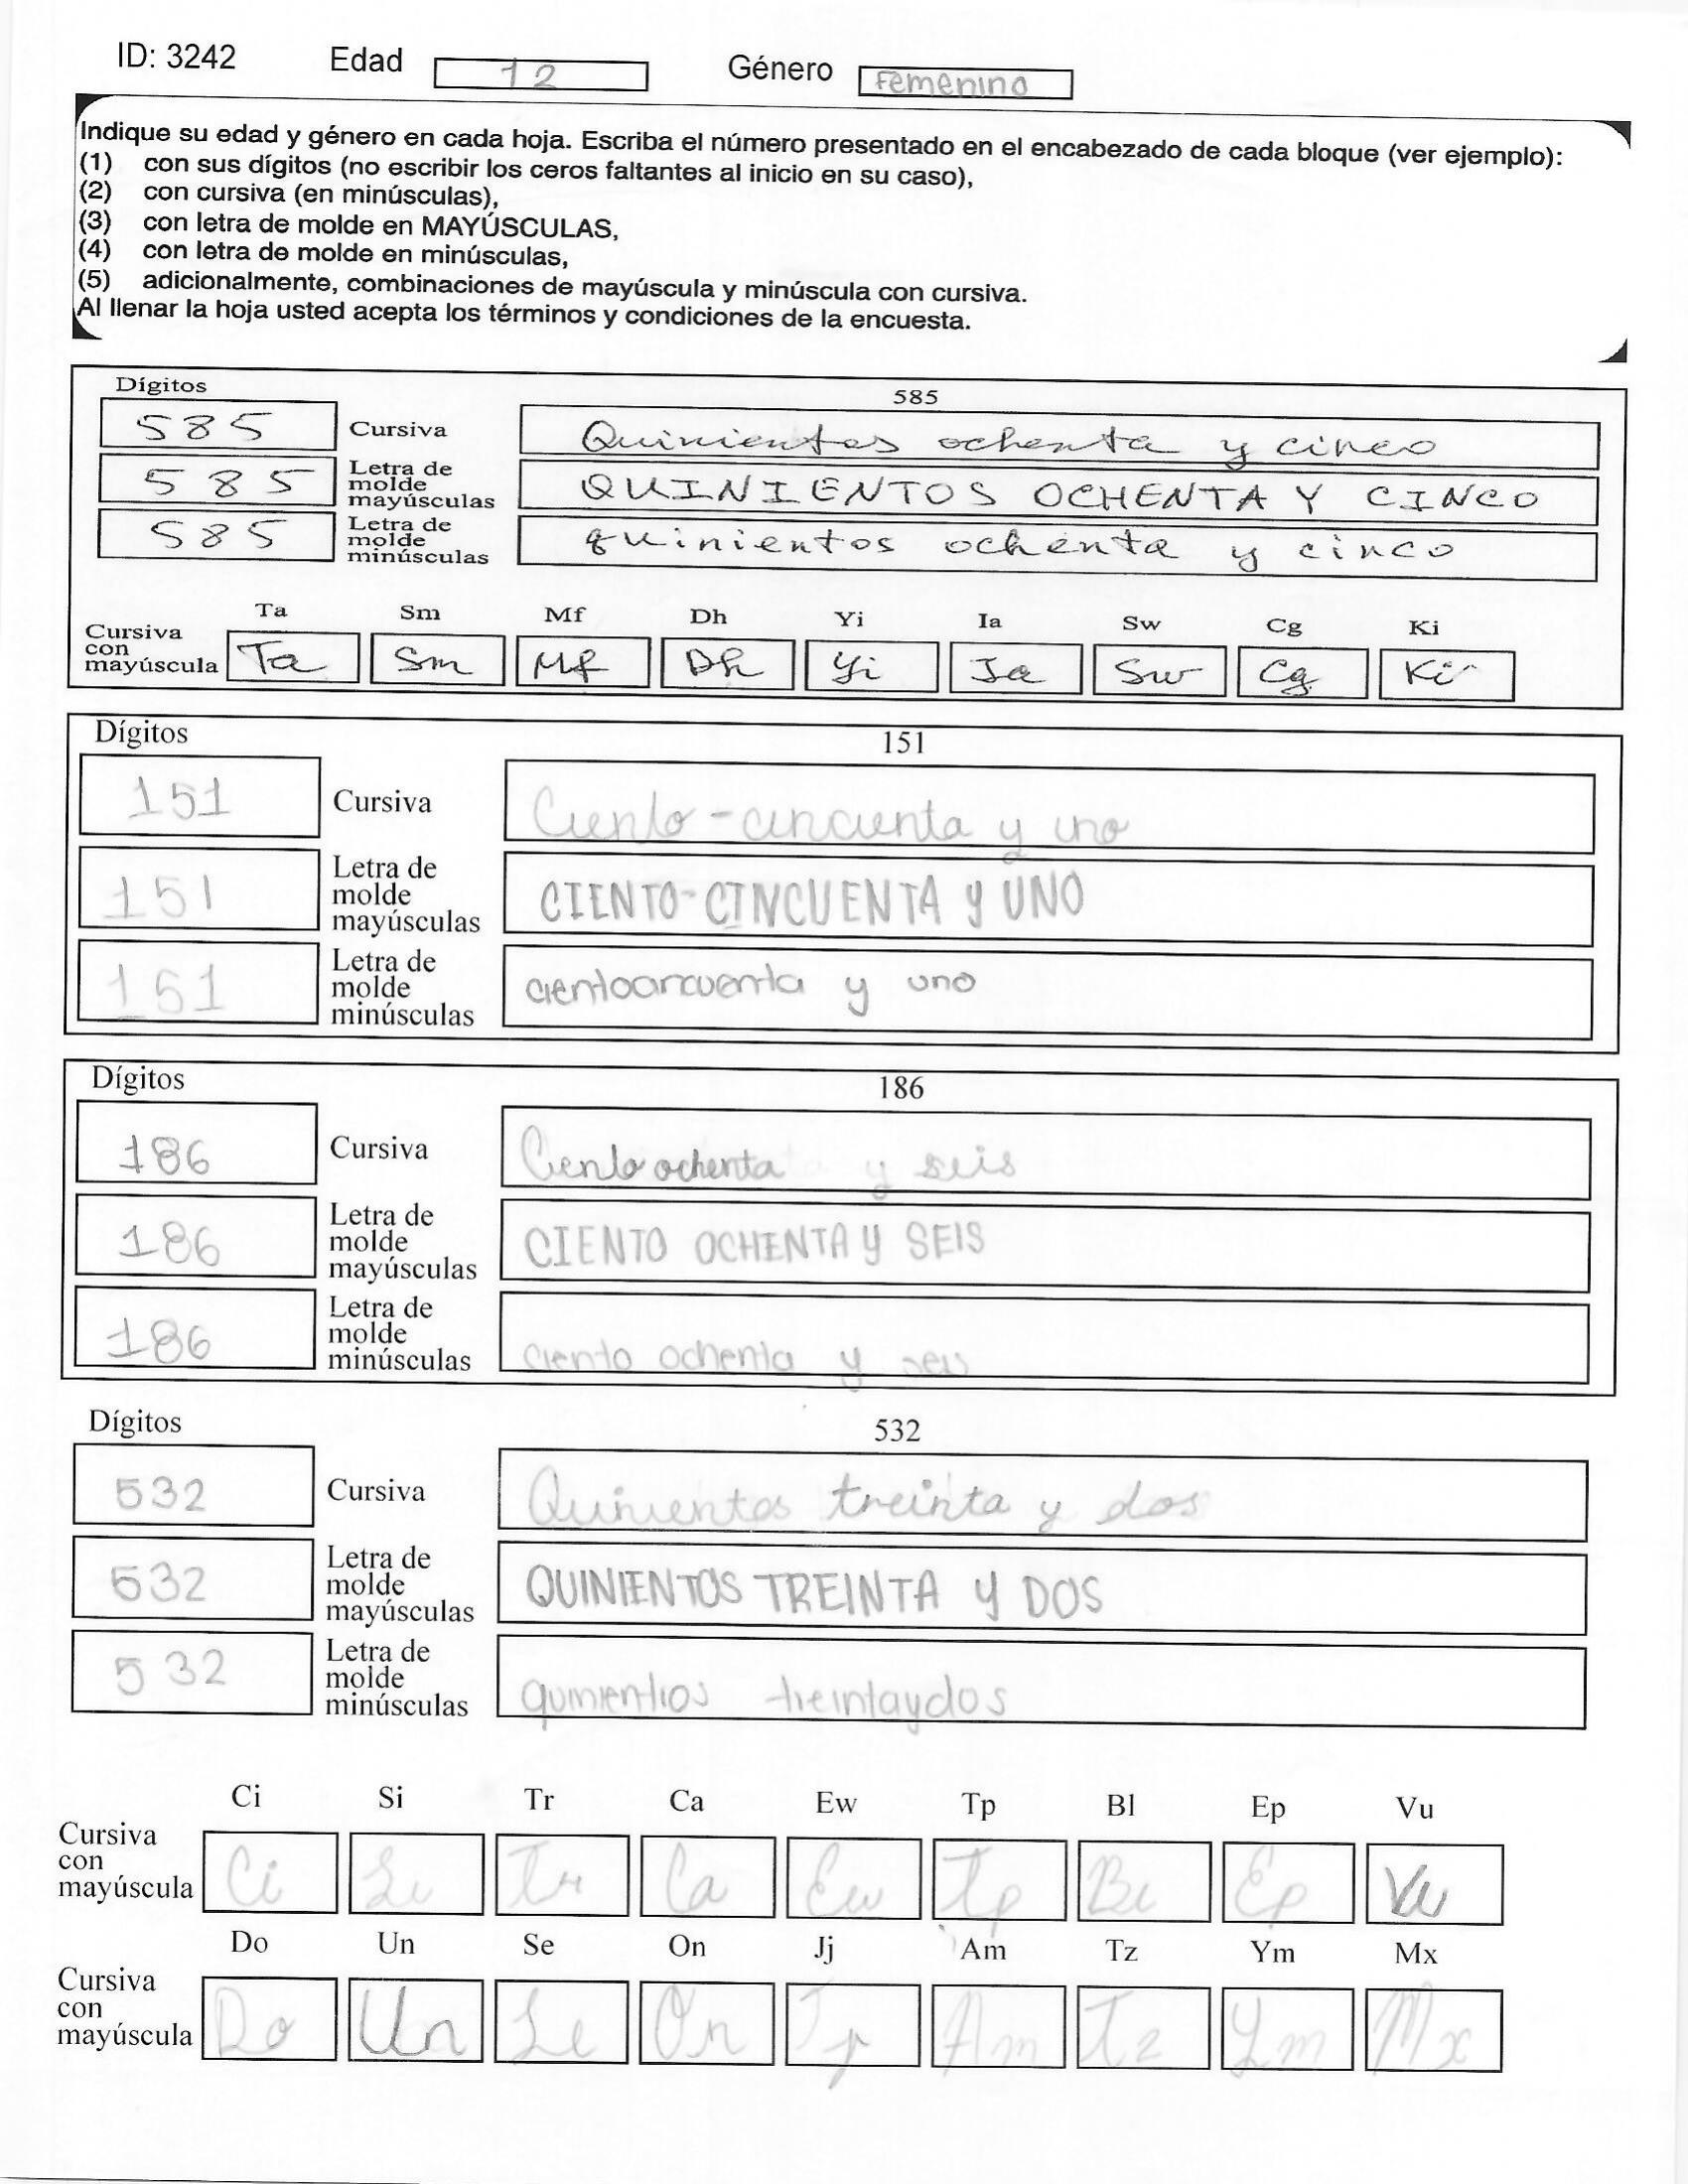 ID: 3242 Edad 12 Género Femenino
Indique su edad y género en cada hoja. Escriba el número presentado en el encabezado de cada bloque (ver ejemplo):
(1) con sus dígitos (no escribir los ceros faltantes al inicio en su caso),
(2) con cursiva (en minúsculas),
(3) con letra de molde en MAYÚSCULAS,
(4) con letra de molde en minúsculas,
(5) adicionalmente, combinaciones de mayúscula y minúscula con cursiva.
Al llenar la hoja usted acepta los términos y condiciones de la encuesta.
Dígitos 585
585 Cursiva Quinientos ochenta y cinco
585 Letra de molde mayúsculas QUINIENTOS OCHENTA Y CINCO
585 Letra de molde minúsculas quinientos ochenta y cinco
Ta Sm Mf Dh Yi Ia Sw Cg Ki
Cursiva con mayúscula Ta Sm Mf Dh Yi Ia Sw Cg Ki
Dígitos 151
151 Cursiva Ciento-cincuenta y uno
151 Letra de molde mayúsculas CIENTO-CINCUENTA y UNO
151 Letra de molde minúsculas cientocincuenta y uno
Dígitos 186
186 Cursiva Ciento ochenta y seis
186 Letra de molde mayúsculas CIENTO OCHENTA y SEIS
186 Letra de molde minúsculas ciento ochenta y seis
Dígitos 532
532 Cursiva Quinientos treinta y dos
532 Letra de molde mayúsculas QUINIENTOS TREINTA y DOS
532 Letra de molde minúsculas quinientios treintaydos
Ci Si Tr Ca Ew Tp Bl Ep Vu
Cursiva con mayúscula Ci Si Tr Ca Ew Tp Bl Ep Vu
Do Un Se On Jj Am Tz Ym Mx
Cursiva con mayúscula Do Un Se On Jj Am Tz Ym Mx